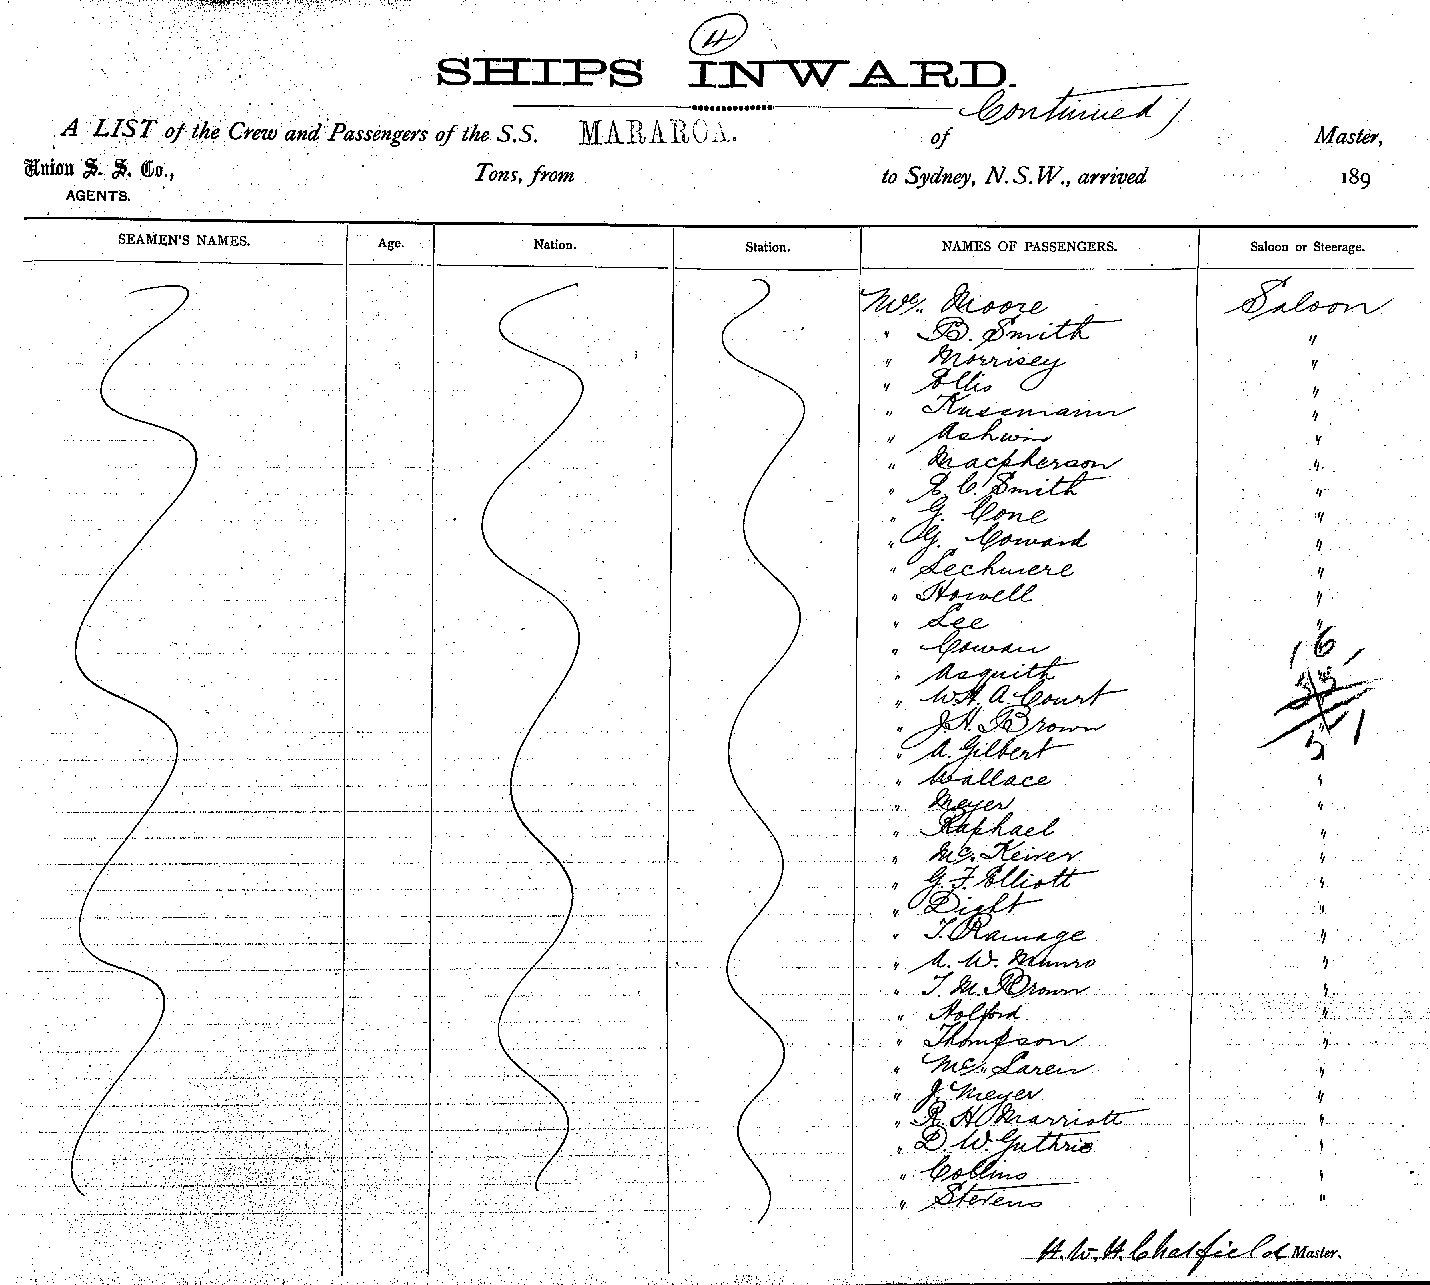 4
SHIPS INWARD.
Continued
A LIST of the Crew and Passengers of the S.S. MARAROA. of Master,
Union S. S. Co., Tons, from to Sydney, N.S.W., arrived 189
AGENTS.
SEAMEN'S NAMES. Age. Nation. Station. NAMES OF PASSENGERS. Saloon or Steerage.
Mr. Moore Saloon
" B. Smith "
" Morrisey "
" Ellis "
" Kussmann "
" Ashwin "
" Macpherson "
" E. C. Smith "
" G. Cone "
" G. Coward "
" Lechmere "
" Howell "
" Lee "
" Cowan 6
" Asquith
" W. H. A. Court
" J. H. Brown
" A. Gilbert
" Wallace "
" Meyer "
" Raphael "
" Mc. Keiver "
" G. F. Elliott "
" Dight "
" T. Ramage "
" A. W. Munro "
" T. M. Brown "
" Holford "
" Thompson "
" Mc. Laren "
" J. Meyer "
" R. H. Marriott "
" D. W. Guthrie "
" Collins "
" Stevens "
H. W. H. Chatfield Master.